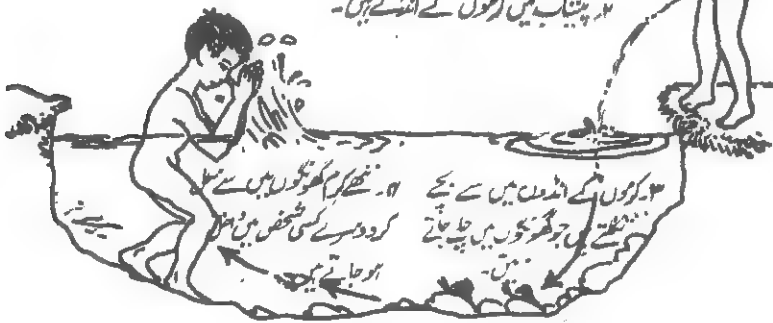 ۲۔ پیشاب میں کرموں کے انڈے ہیں۔
۳۔ کرموں کے انڈوں میں سے بچے
نکلتے ہیں جو گھونگوں میں چلے جاتے
ہیں۔
۴۔ ننھے کرم گھونگوں میں سے نکل
کر دوسرے کسی شخص میں داخل
ہو جاتے ہیں